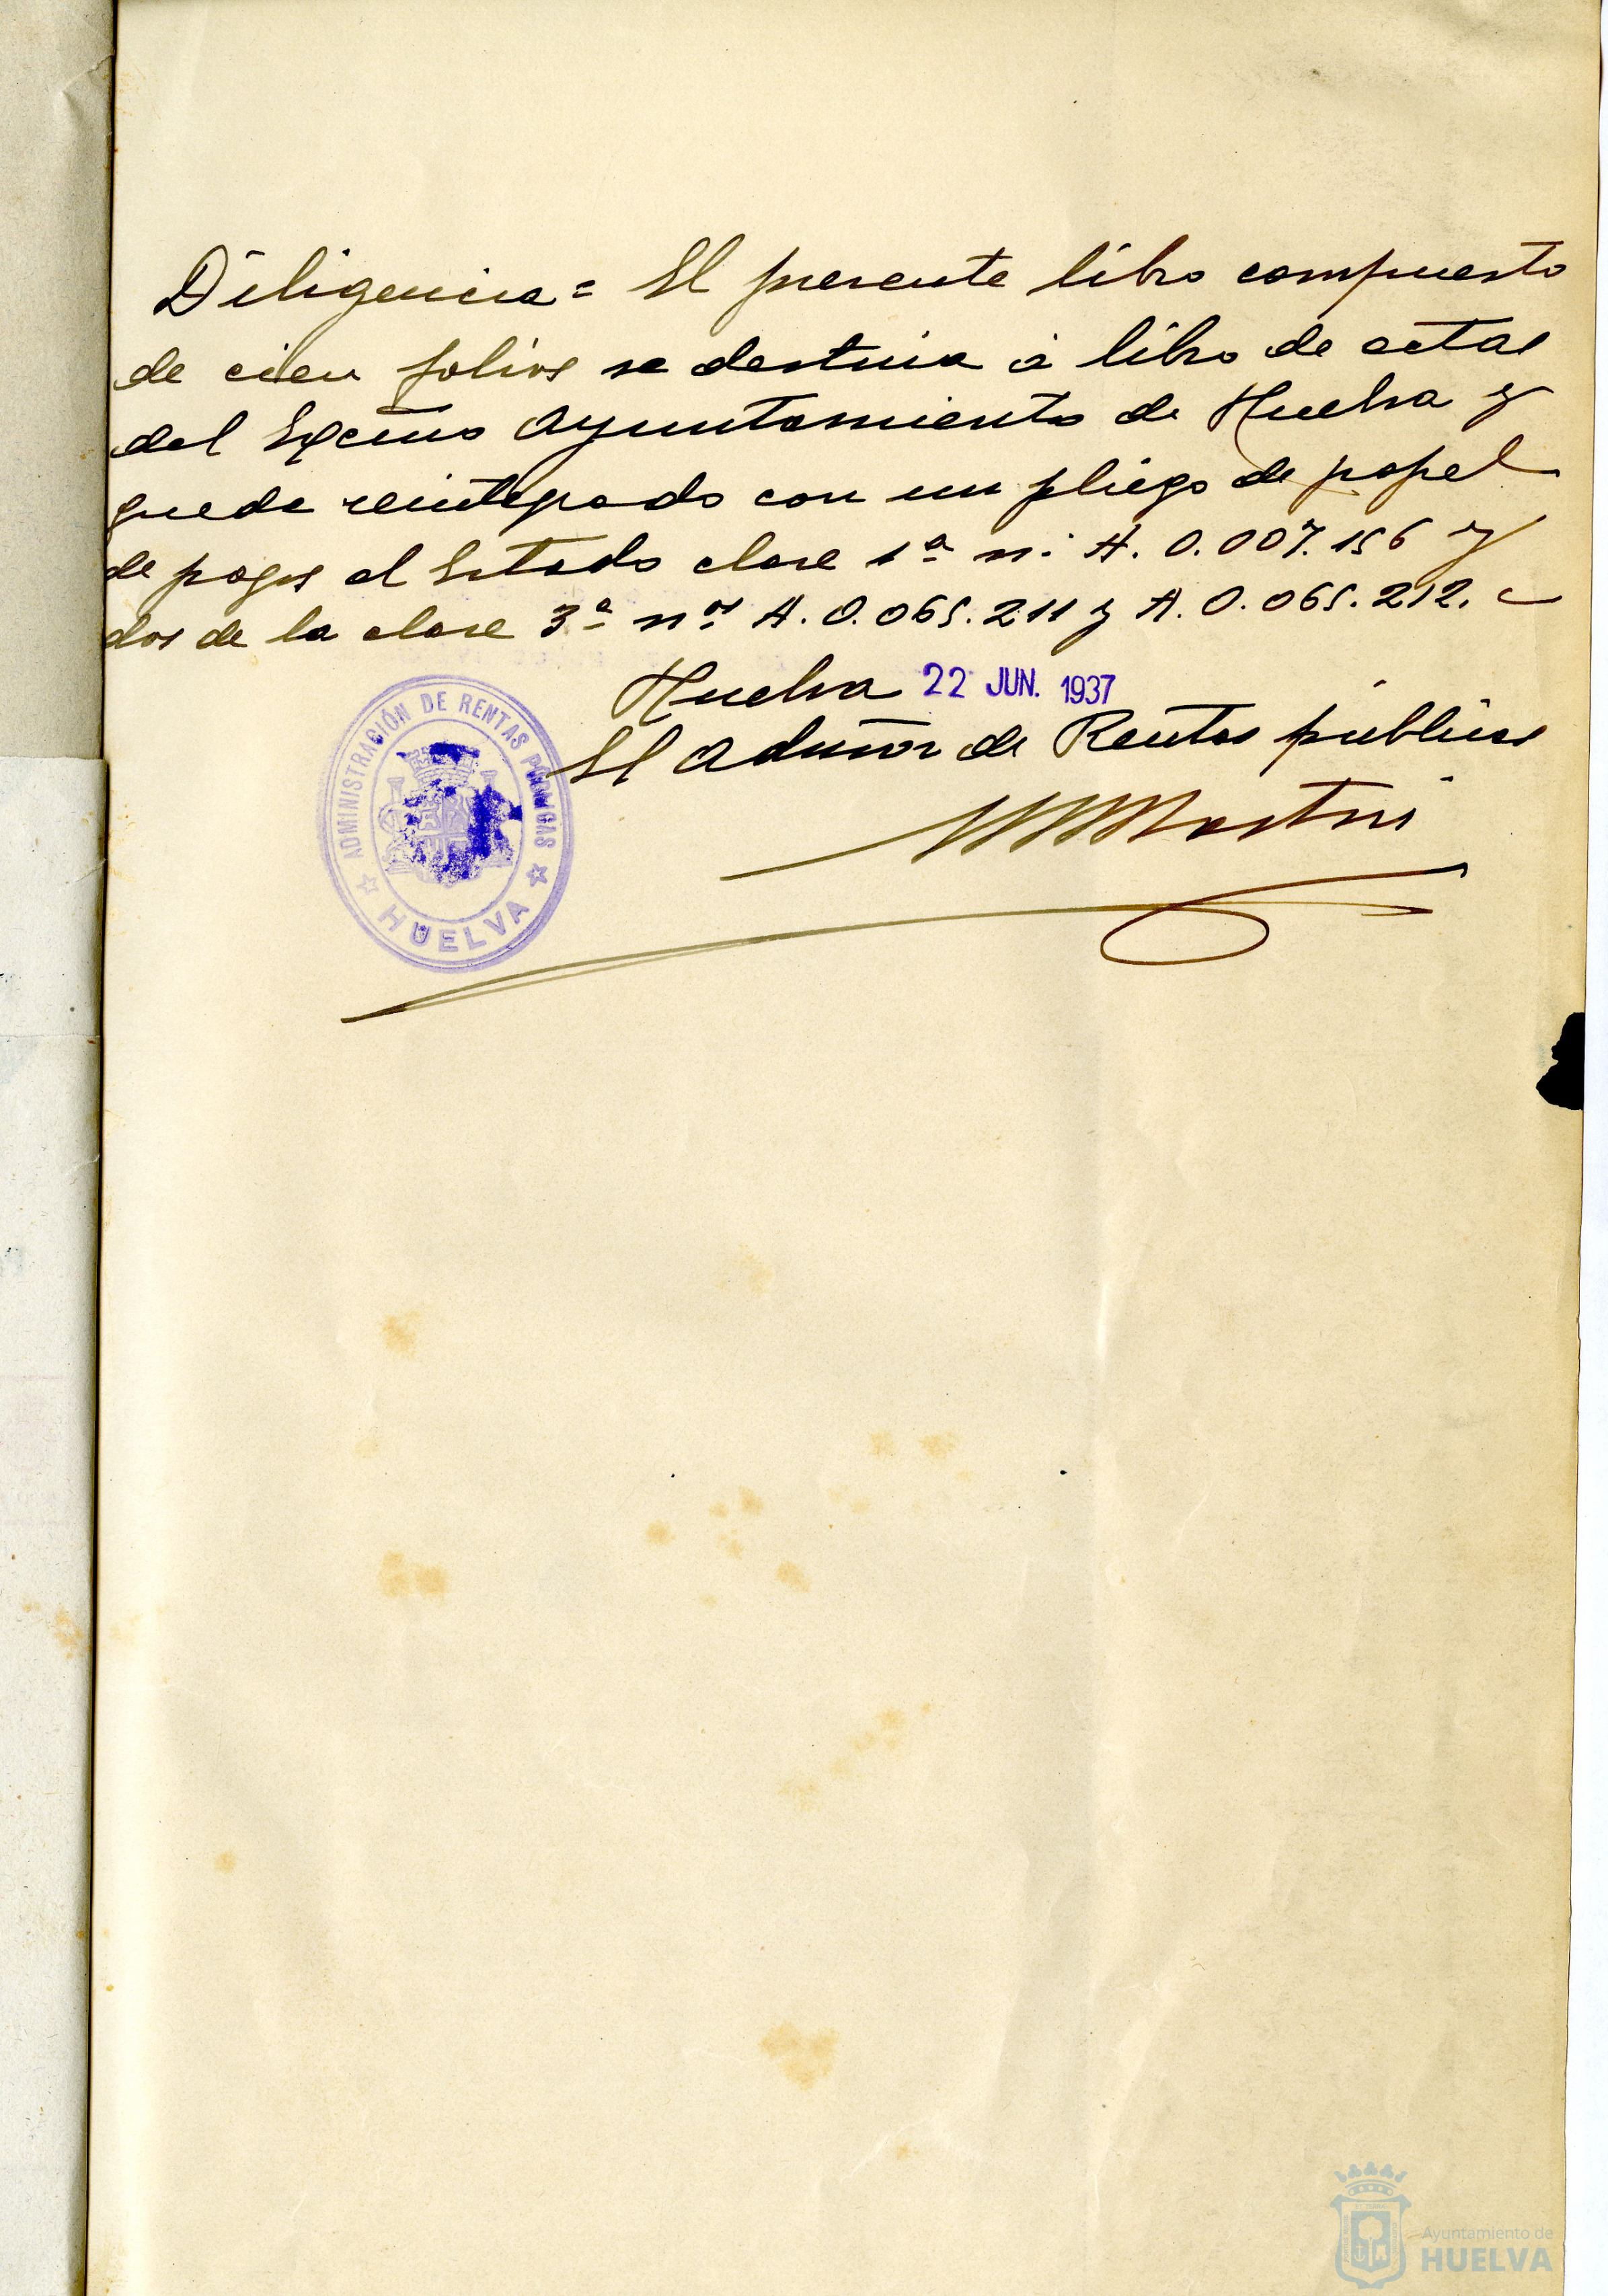 Diligencia = El presente libro compuesto
de cien folios se destina á libro de actas
del Excmo Ayuntamiento de Huelva y
queda reintegrado con un pliego de papel
de pagos al Estado clase 1ª nº A. 0.007.156 y
dos de la clase 3ª nos A. 0.065.211 y A. 0.065.212.
Huelva 22 JUN. 1937
El Admor de Rentas públicas
ADMINISTRACIÓN DE RENTAS PÚBLICAS
HUELVA
Ayuntamiento de
HUELVA